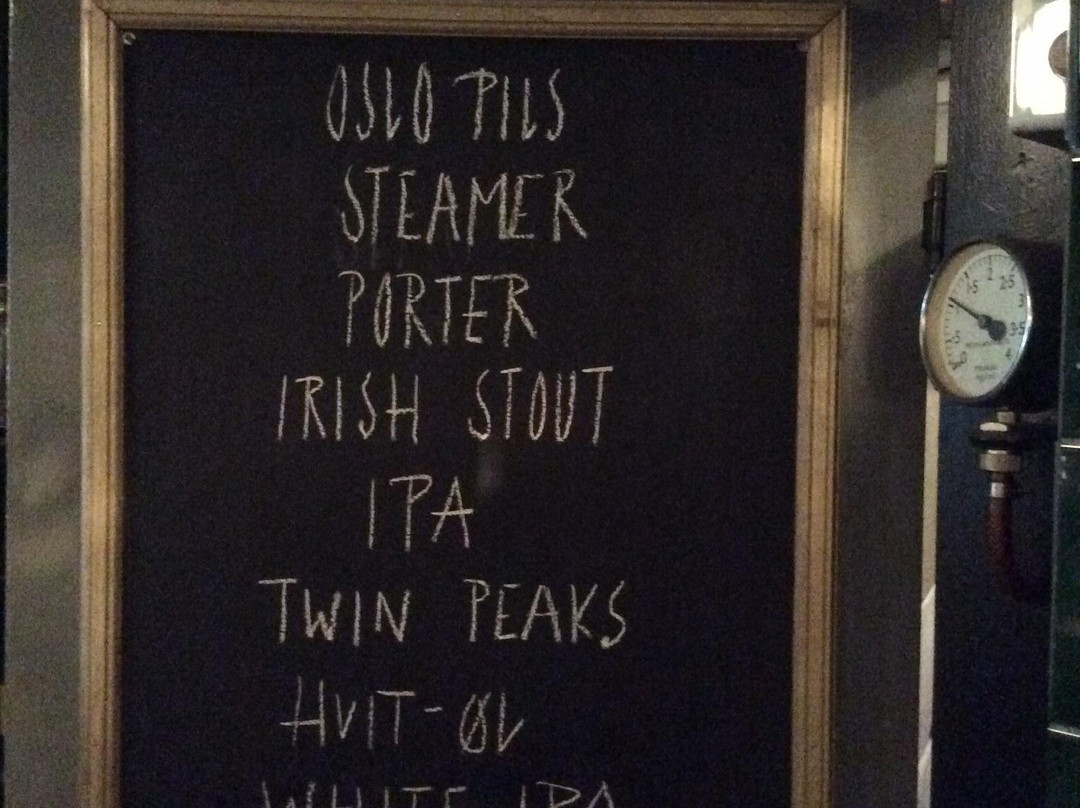 OSLO PILS
STEAMER
PORTER
IRISH STOUT
IPA
TWIN PEAKS
HVIT-ØL
WHITE IPA
1.5 2 2.5 3 3.5 4
.5 0